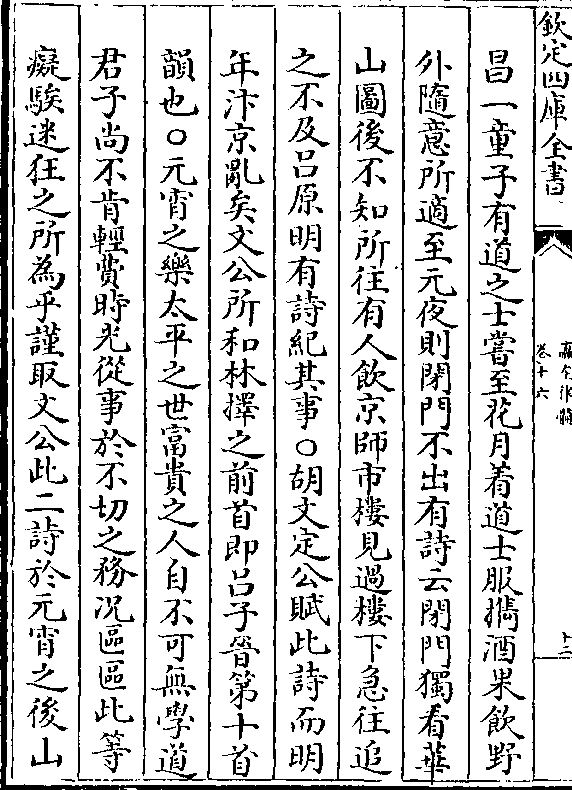 欽定四庫全書
卷十六
十三
昌一童子有道之士嘗至花月着道士服㩗酒果飲野
外隨意所適至元夜則閉門不出有詩云閉門獨看華
山圖後不知所往有人飲京師市樓見過樓下急往追
之不及吕原明有詩紀其事〇胡文定公賦此詩而明
年汴京亂矣文公所和林擇之前首即吕子晉第十首
韻也〇元宵之樂太平之世富貴之人自不可無學道
君子尚不肯輕費時光從事於不切之務况區區此等
癡騃迷狂之所為乎謹取文公此二詩於元宵之後山